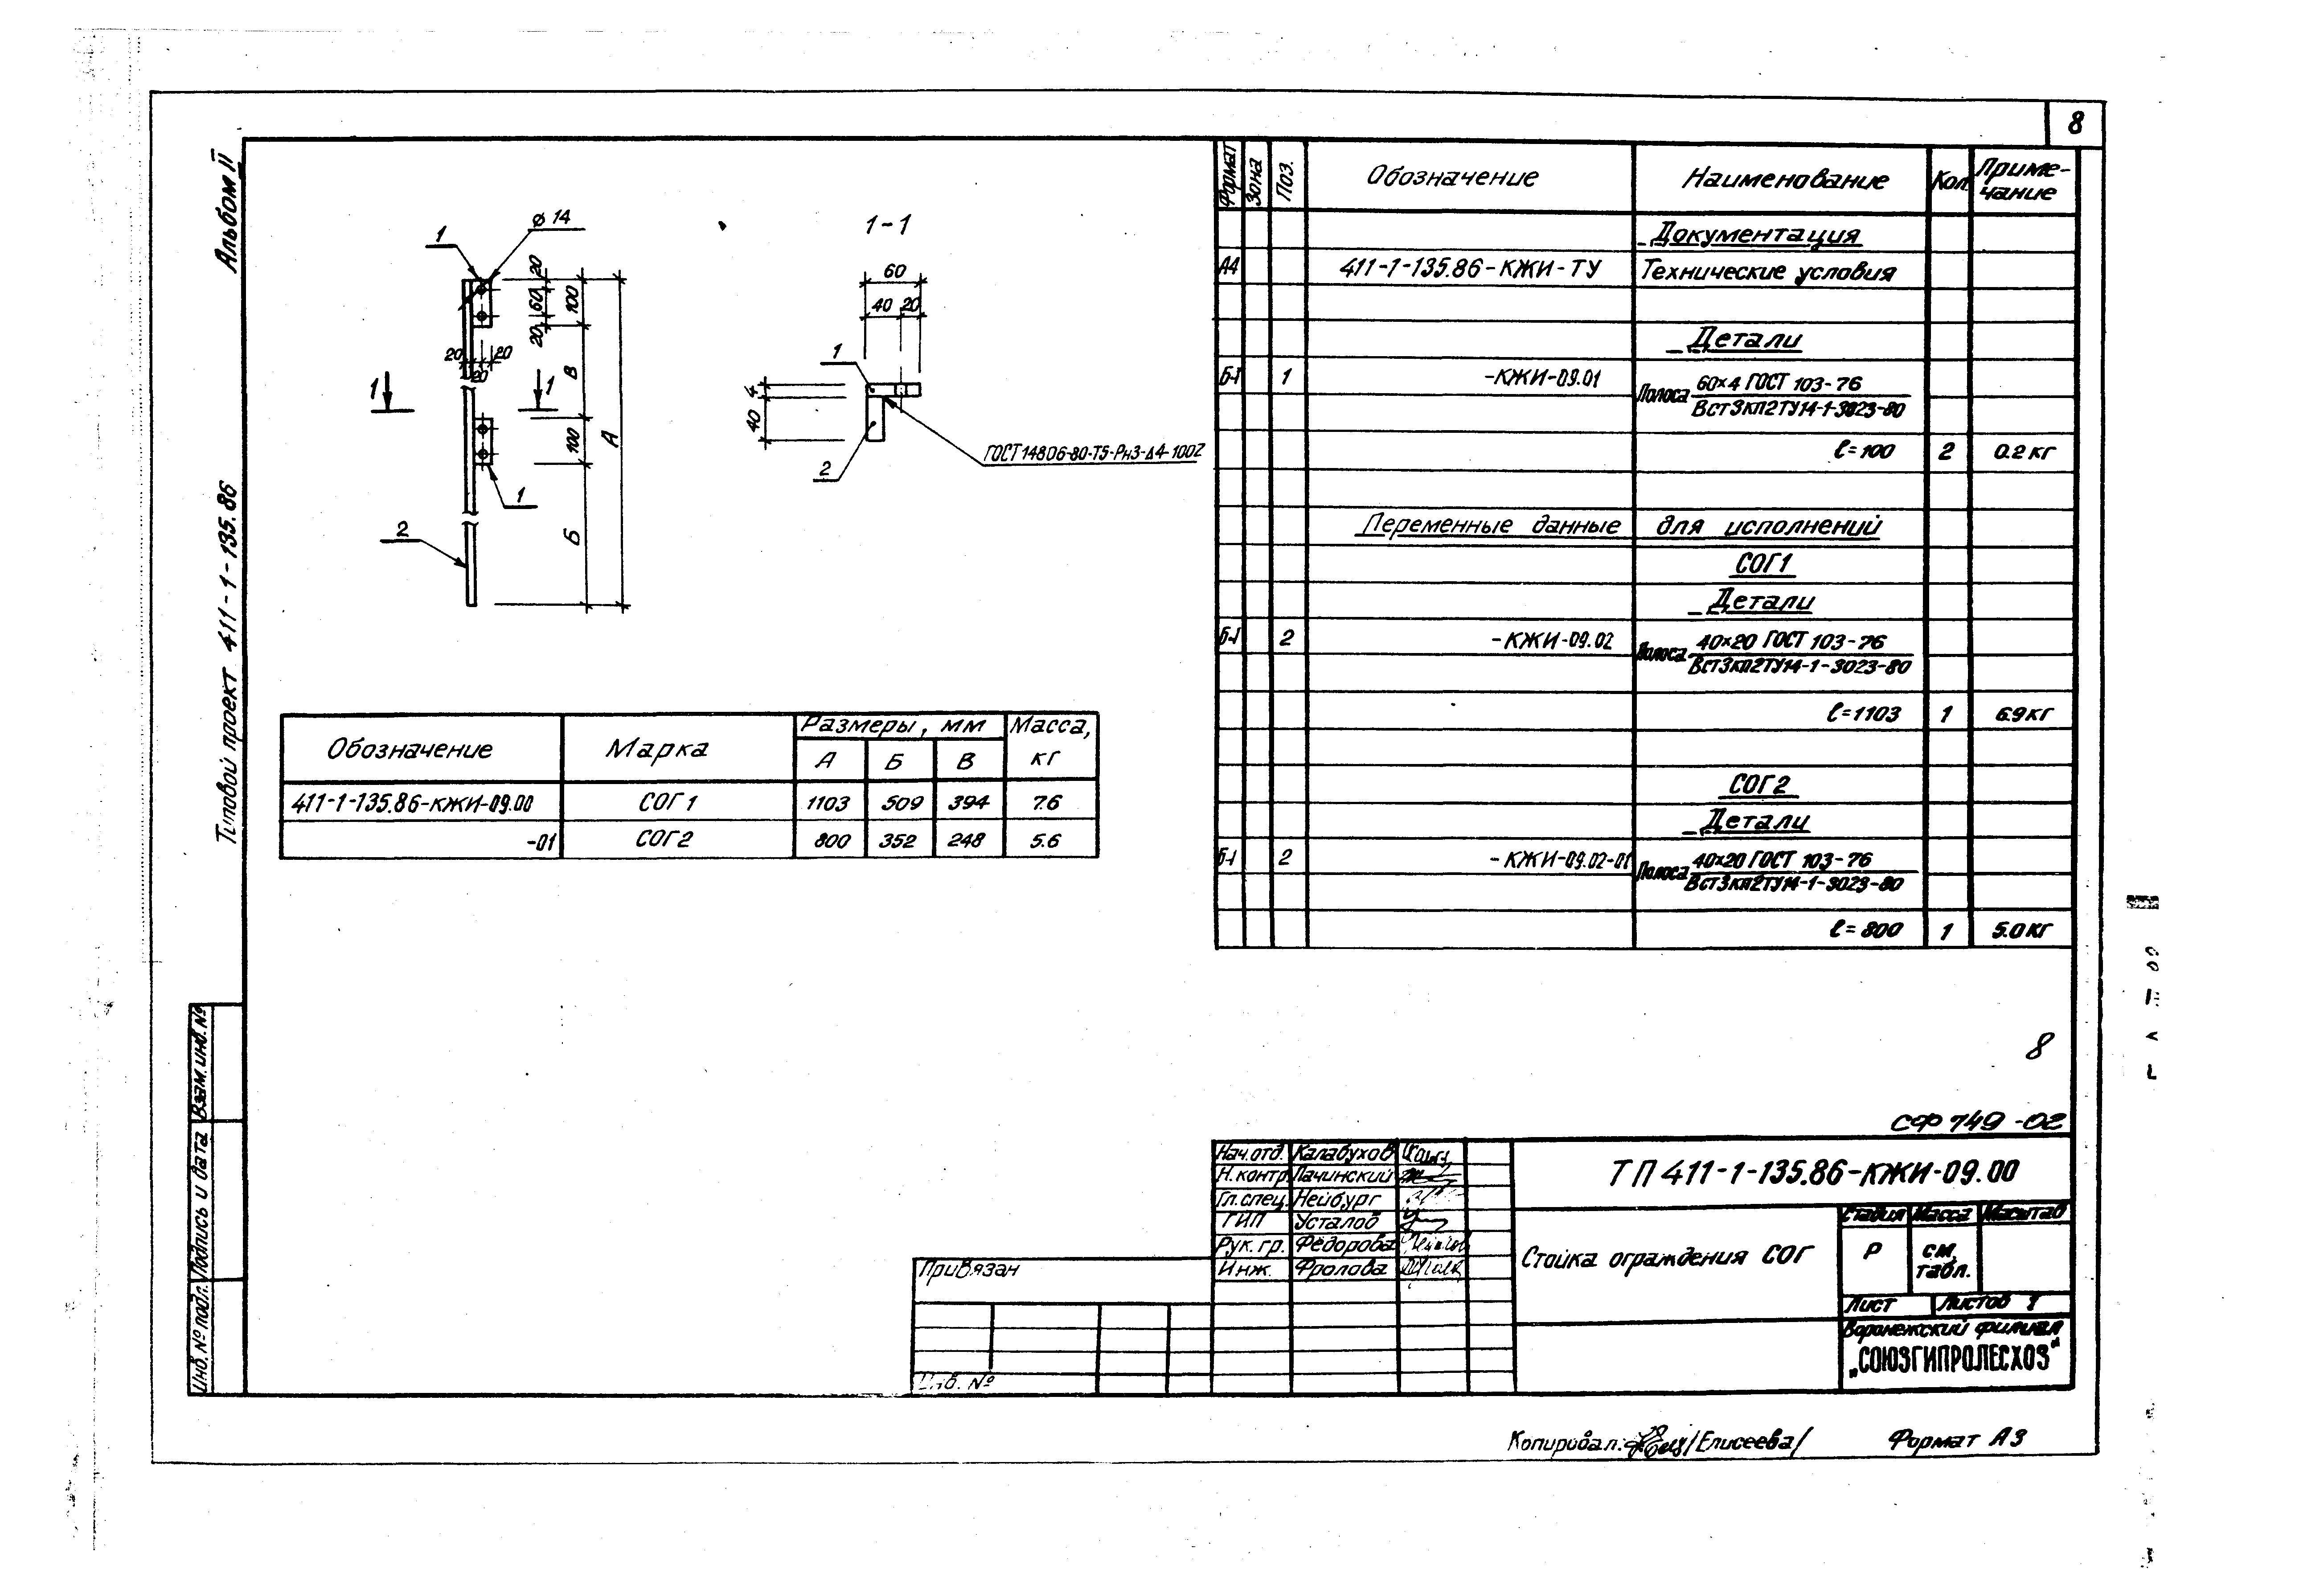 8
Альбом II
Типовой проект 411-1-135.86
1
ø 14
20
60
20
100
В
100
А
Б
20
20
20
1
1
1
2
1-1
60
40 20
1
4
40
2
ГОСТ 14806-80-Т5-РнЗ-Δ4-100Z
Обозначение
Марка
Размеры, мм
Масса, кг
А
Б
В
411-1-135.86-КЖИ-09.00 СОГ1 1103 509 394 7.6
-01 СОГ2 800 352 248 5.6
Формат
Зона
Поз.
Обозначение
Наименование
Кол.
Примечание
Документация
А4 411-1-135.86-КЖИ-ТУ Технические условия
Детали
Б-Г 1 -КЖИ-09.01 Полоса 60×4 ГОСТ 103-76
ВСт3кп2ТУ14-1-3023-80
ℓ=100 2 0.2 кг
Переменные данные для исполнений
СОГ1
Детали
2 -КЖИ-09.02 Полоса 40×20 ГОСТ 103-76
ВСт3кп2ТУ14-1-3023-80
ℓ=1103 1 6.9 кг
СОГ2
Детали
2 -КЖИ-09.02-01 Полоса 40×20 ГОСТ 103-76
ВСт3кп2ТУ14-1-3023-80
ℓ=800 1 5.0 кг
8
СФ 749-02
Взам. инв. №
Подпись и дата
Инв. № подл.
Привязан
Инв. №
Нач. отд. Калабухов
Н. контр. Лачинский
Гл. спец. Нейбург
ГИП Усталов
Рук. гр. Фёдорова
Инж. Фролова
ТП 411-1-135.86-КЖИ-09.00
Стойка ограждения СОГ
Стадия Масса Масштаб
Р см. табл.
Лист Листов 1
Воронежский филиал
„СОЮЗГИПРОЛЕСХОЗ"
Копировал: /Елисеева/
Формат А3